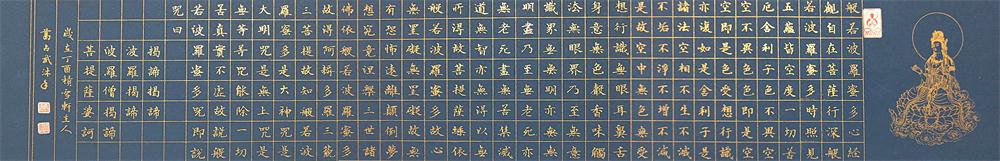 般若波羅蜜多心經
觀自在菩薩行深般
若波羅蜜多時照見
五蘊皆空度一切苦
厄舍利子色不異空
空不異色色即是空
空即是色受想行識
亦復如是舍利子是
諸法空相不生不滅
不垢不淨不增不減
是故空中無色無受
想行識無眼耳鼻舌
身意無色聲香味觸
法無眼界乃至無意
識界無無明亦無無
明盡乃至無老死亦
無老死盡無苦集滅
道無智亦無得以無
所得故菩提薩埵依
般若波羅蜜多故心
無罣礙無罣礙故無
有恐怖遠離顛倒夢
想究竟涅槃三世諸
佛依般若波羅蜜多
故得阿耨多羅三藐
三菩提故知般若波
羅蜜多是大神咒是
大明咒是無上咒是
無等等咒能除一切
苦真實不虛故說般
若波羅蜜多咒即說
咒曰
揭諦揭諦
波羅揭諦
波羅僧揭諦
菩提薩婆訶
歲在丁酉積雪軒主人
武沐手